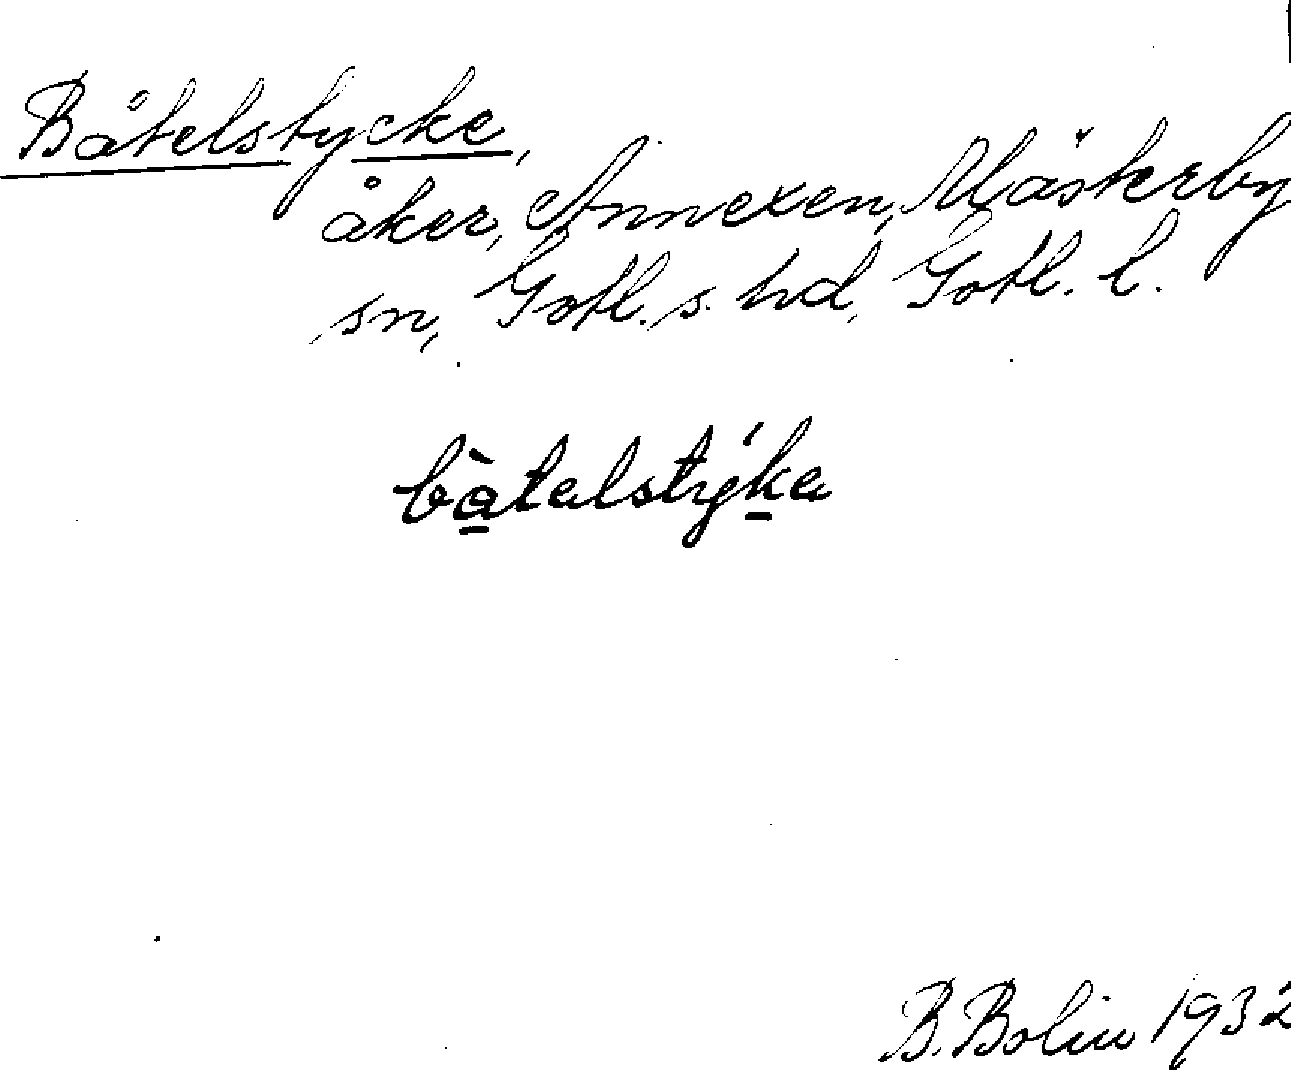 Båtelstycke,
åker, Annexen, Mästerby
sn, Gotl. s. hd, Gotl. l.
bàtalstýka
B. Bolin 1932